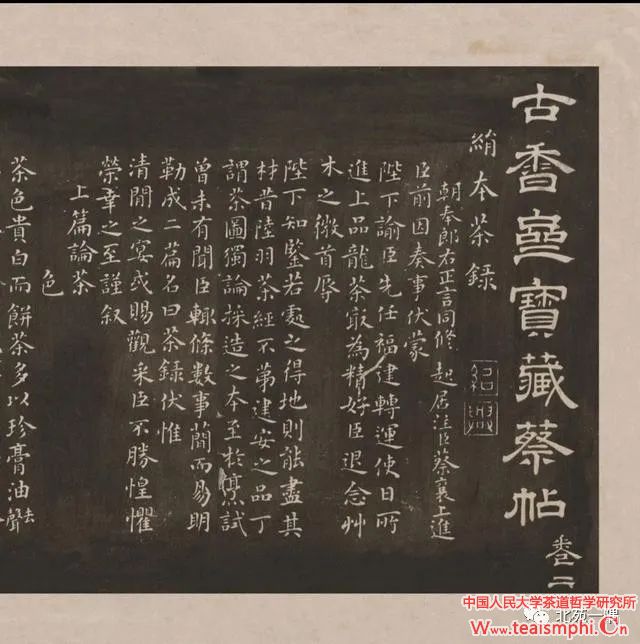 古香齋寶藏蔡帖
卷二
絹本茶錄
紹興
朝奉郎右正言同修起居注臣蔡襄上進
臣前因奏事伏蒙
陛下諭臣先任福建轉運使日所
進上品龍茶㝡為精好臣退念艸
木之微首辱
陛下知鑒若處之得地則能盡其
材昔陸羽茶經不第建安之品丁
謂茶圖獨論採造之本至於烹試
曾未有聞臣輒條數事簡而易明
勒成二篇名曰茶錄伏惟
清閒之宴或賜觀采臣不勝惶懼
榮幸之至謹叙
上篇論茶
色
茶色貴白而餅茶多以珍膏油去聲
中国人民大学茶道哲学研究所
北苑一隅
www.teaismphi.Cn